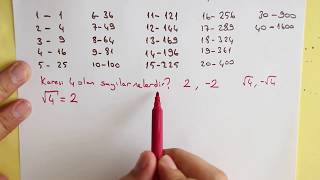 1 - 1 6-36 11-121 16-256 30-900
2 - 4 7-49 12-144 17-289 40-1600
3 - 9 8-64 13-169 18-324
4 - 16 9-81 14-196 19-361
5 - 25 10-100 15-225 20-400
Karesi 4 olan sayılar nelerdir? 2, -2 √4, -√4
√4 = 2